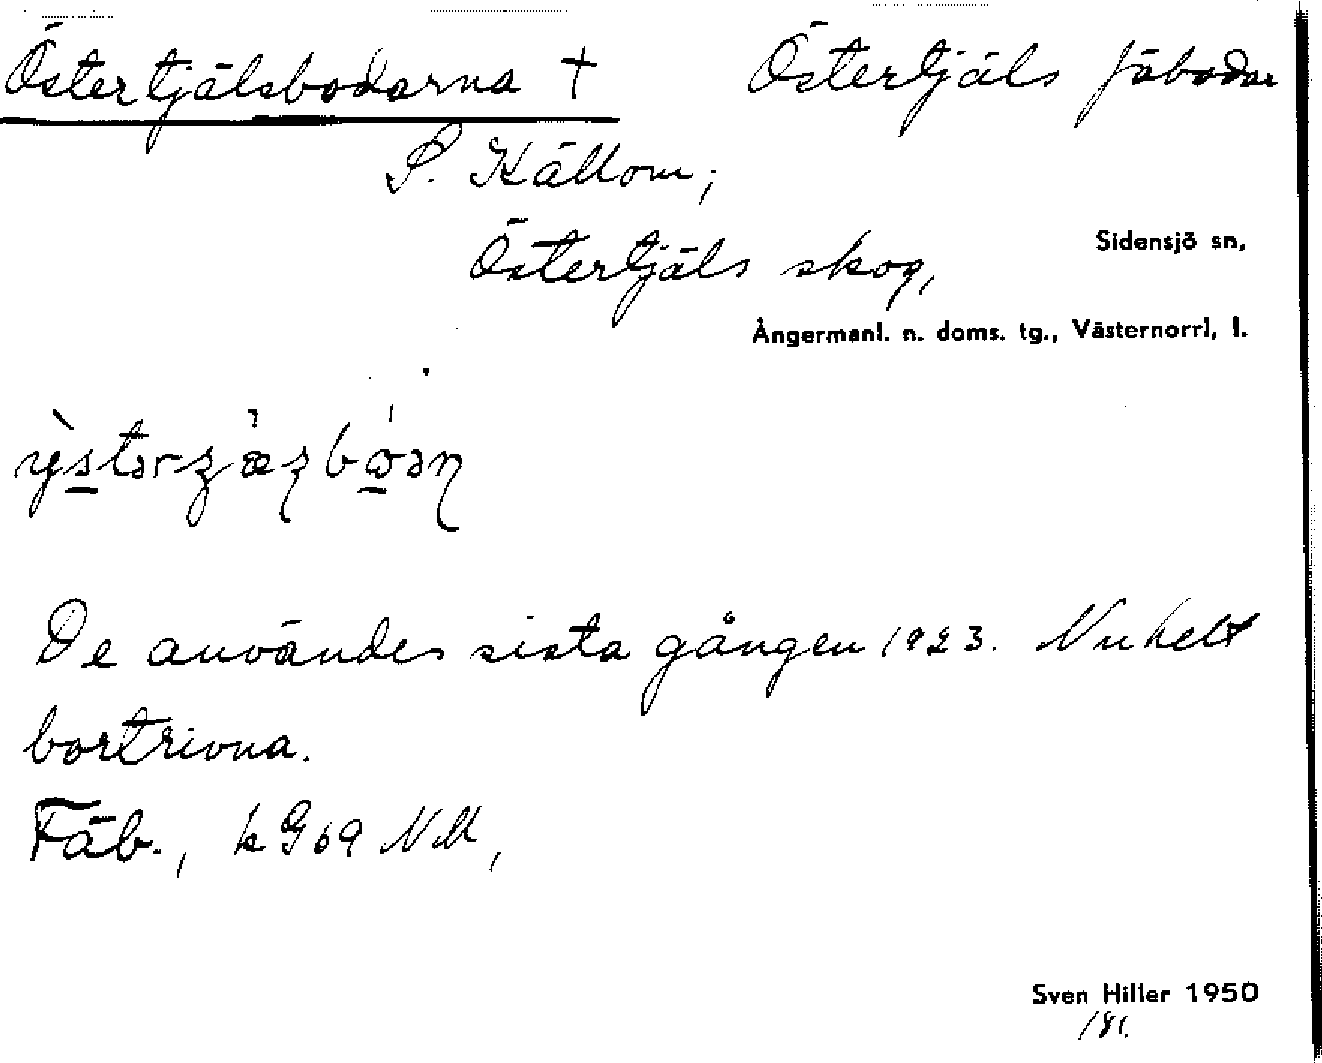 Östertjälsbodarna † Östertjäls fäbodar
S. Källom;
Östertjäls skog,
Sidensjö sn,
Ångermanl. n. doms. tg., Västernorrl, l.
De användes sista gången 1923. Nu helt
bortrivna.
Fäb., k G 69 NM,
Sven Hiller 1950
181.